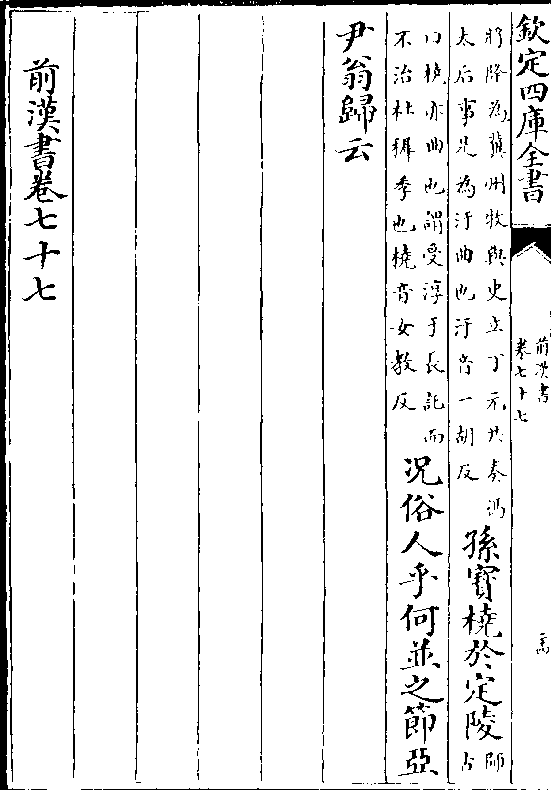 欽定四庫全書
前漢書
卷七十七
將隆為冀州牧與史立丁元共奏馮
太后事是為汙曲也汙音一胡反
孫寶橈於定陵
師
古
曰橈亦曲也謂受淳于長託而
不治杜穉季也橈音女教反
況俗人乎何並之節亞
尹翁歸云
前漢書卷七十七